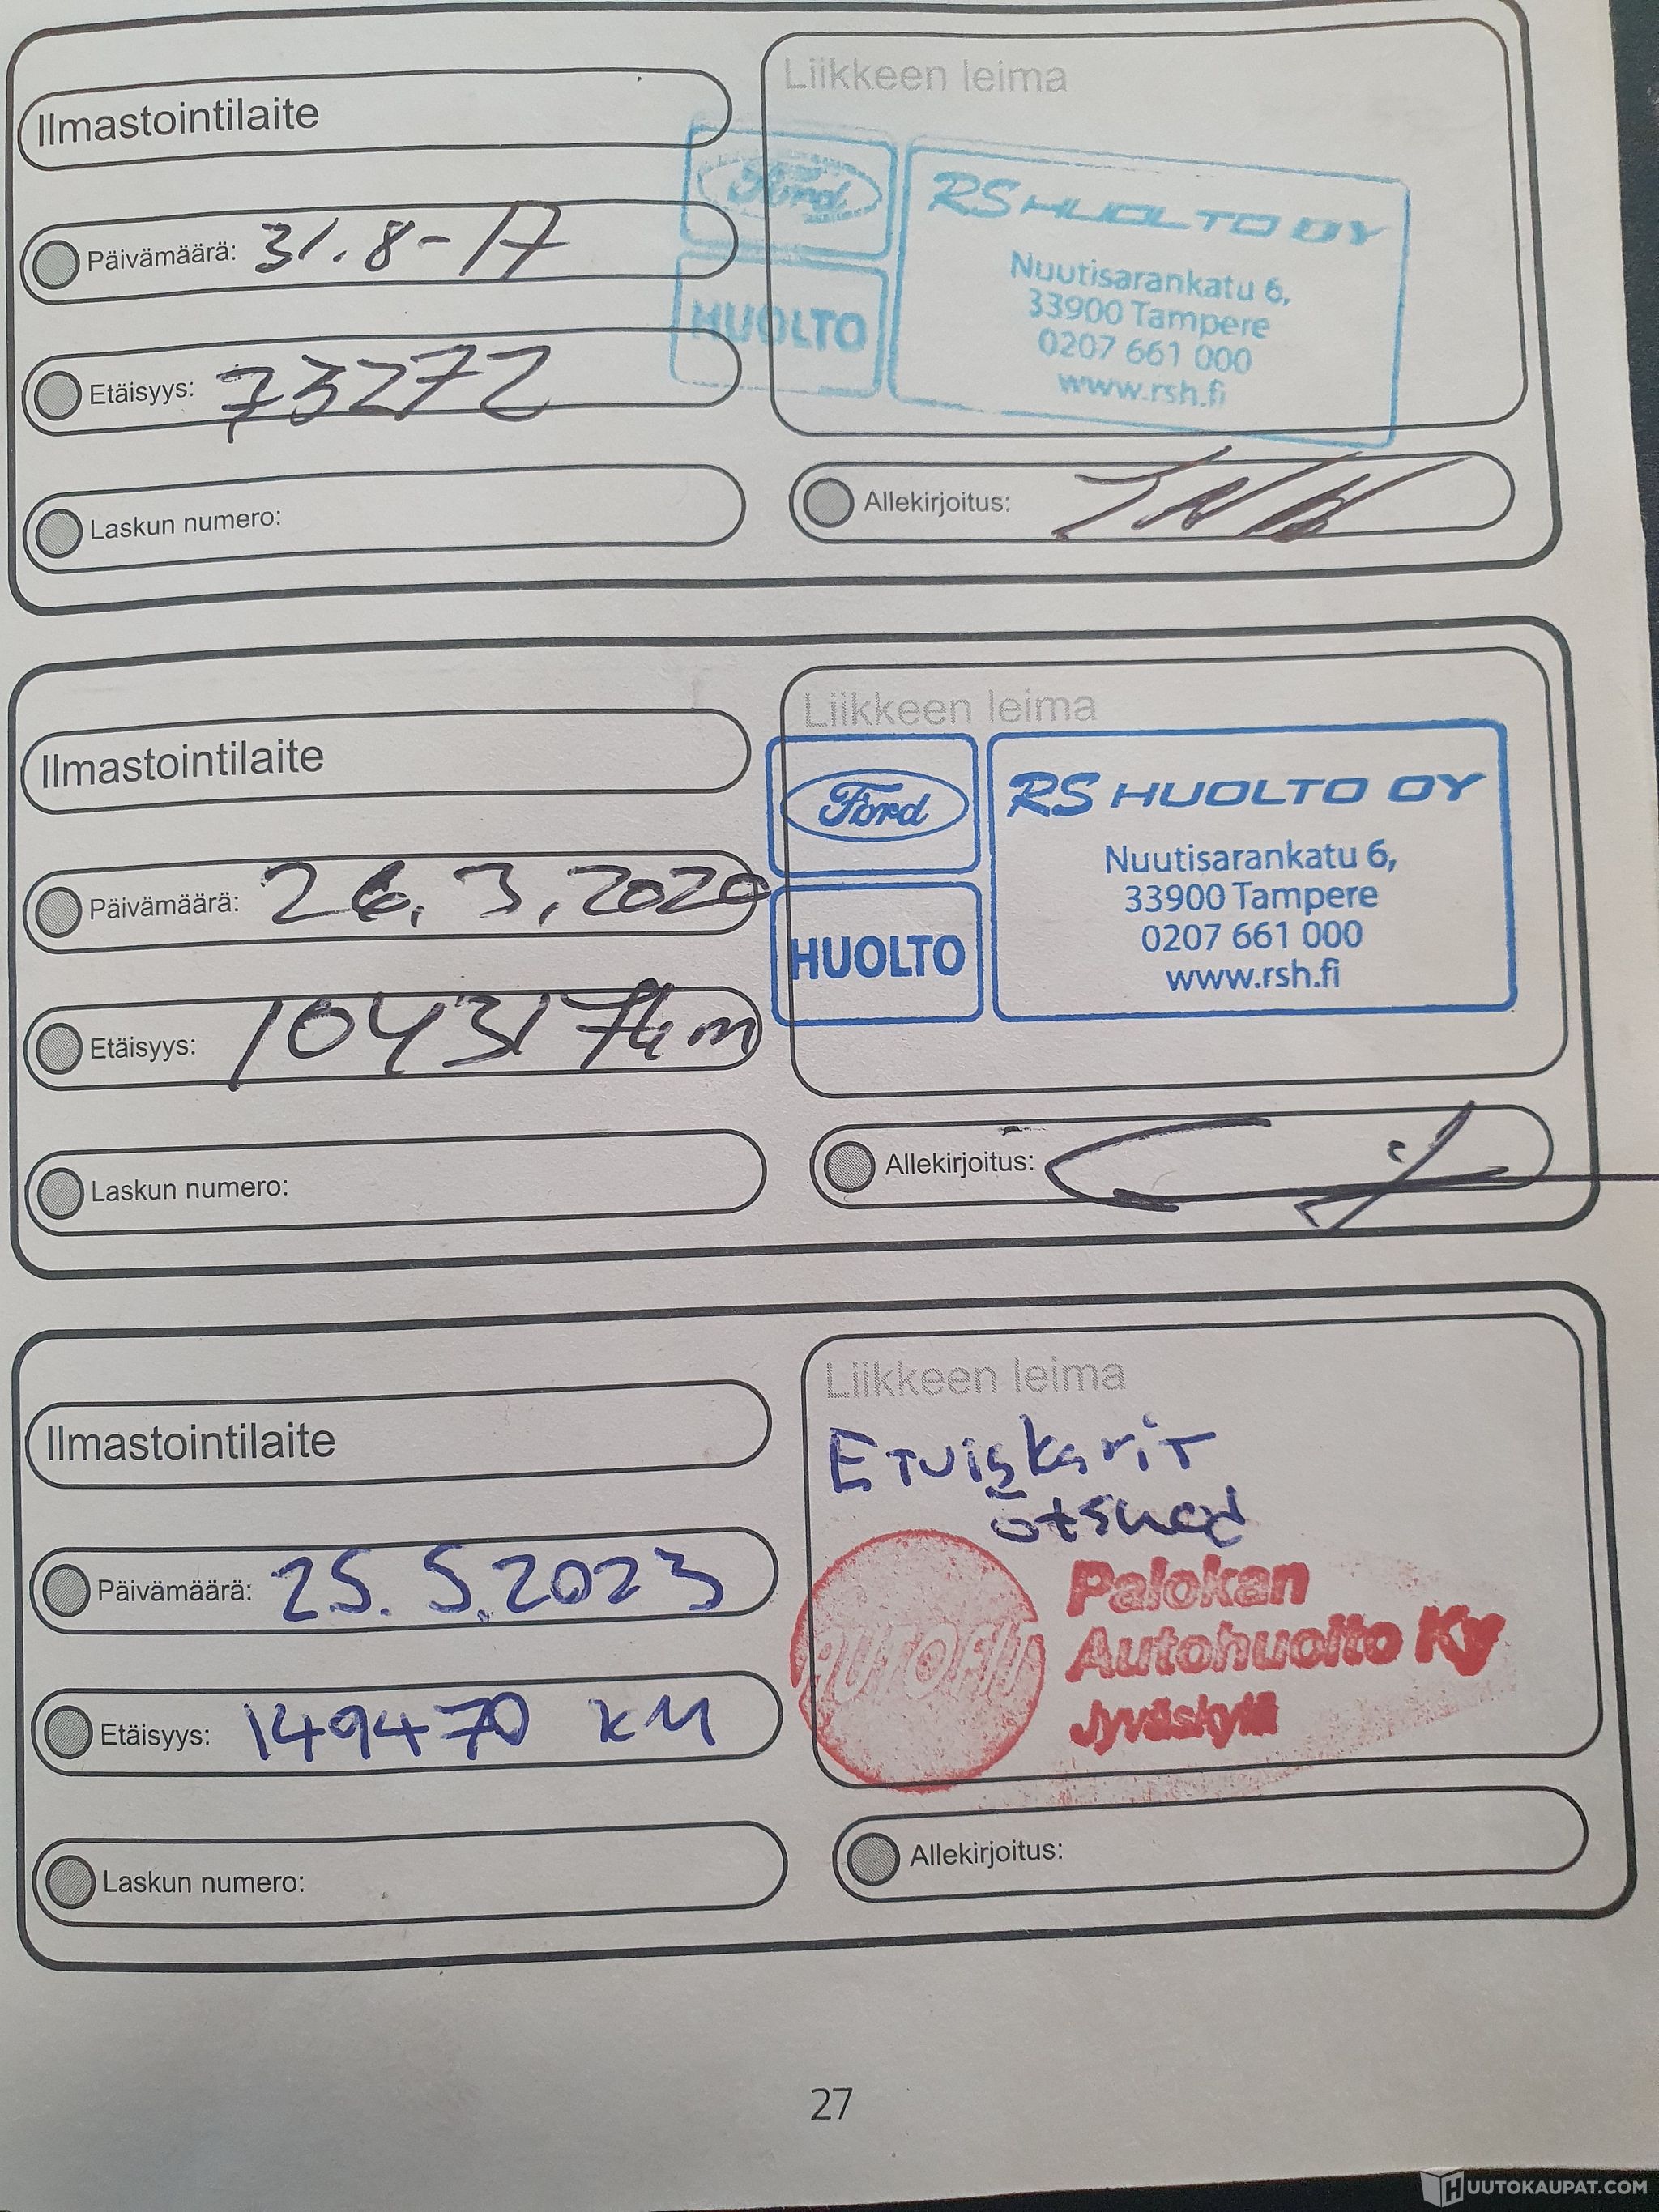 Ilmastointilaite
Liikkeen leima
Päivämäärä: 31.8-17
Etäisyys: 73272
Laskun numero:
Ford
HUOLTO
RS HUOLTO OY
Nuutisarankatu 6,
33900 Tampere
0207 661 000
www.rsh.fi
Allekirjoitus:
Ilmastointilaite
Liikkeen leima
Päivämäärä: 26.3.2020
Etäisyys: 104317km
Laskun numero:
Ford
HUOLTO
RS HUOLTO OY
Nuutisarankatu 6,
33900 Tampere
0207 661 000
www.rsh.fi
Allekirjoitus:
Ilmastointilaite
Liikkeen leima
Päivämäärä: 25.5.2023
Etäisyys: 149470 KM
Laskun numero:
Etuiskarit
Palokan
Autohuolto Ky
Jyväskylä
Allekirjoitus:
27
HUUTOKAUPAT.COM